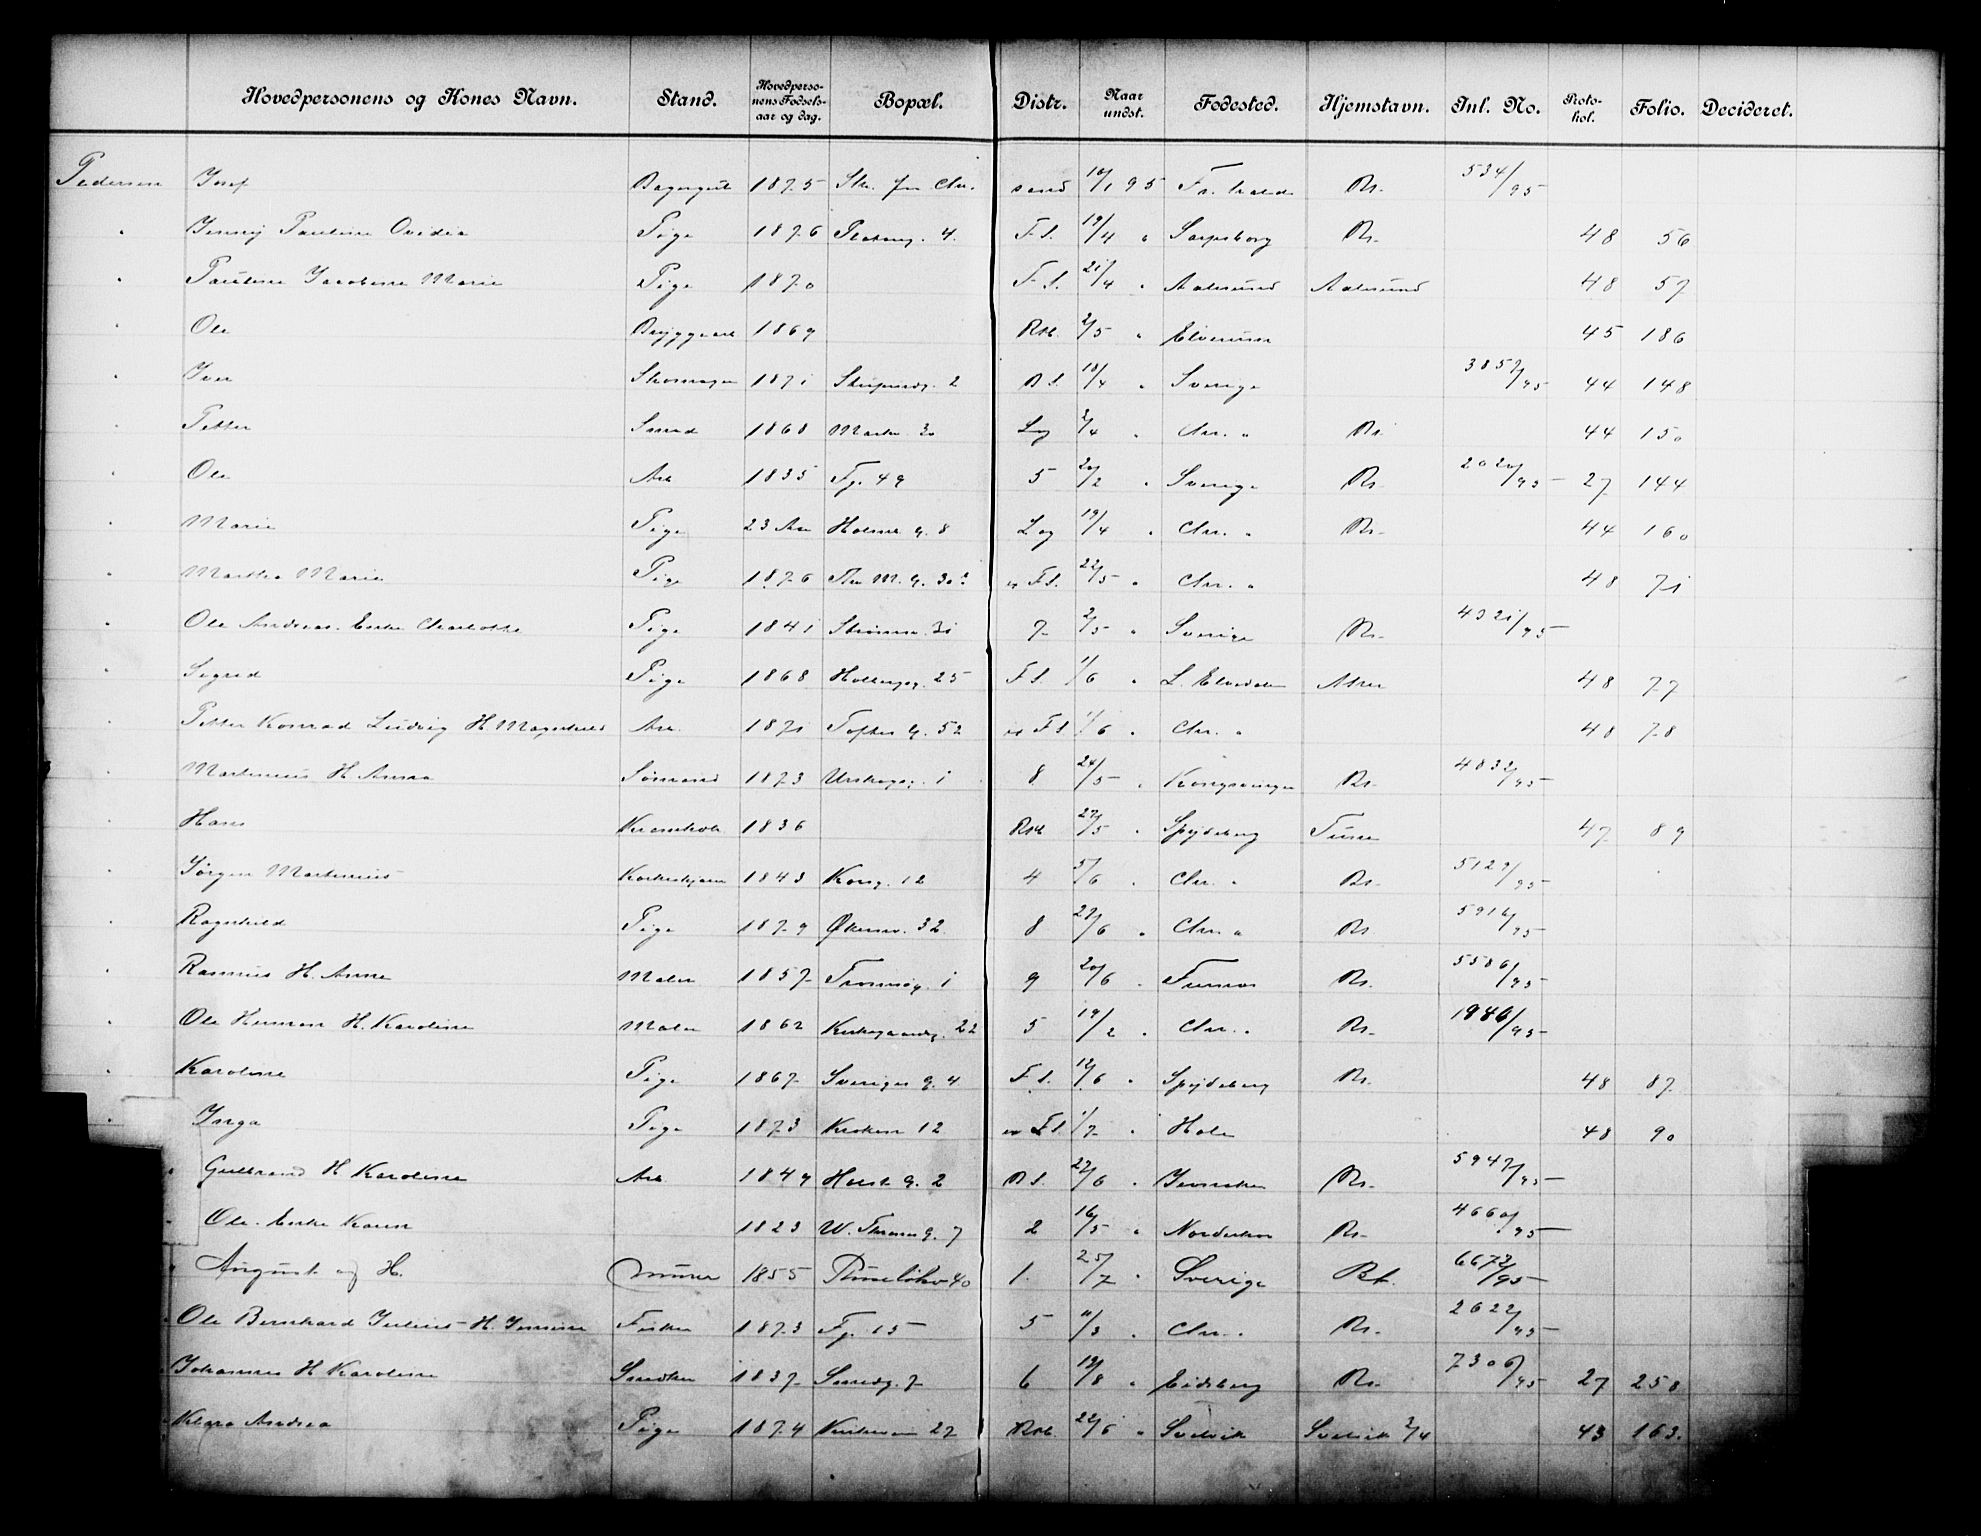 Hovedpersonens og Kones Navn. Stand. Hovedperso-nens Fødsels-aar og dag. Bopæl. Distr. Naar undst. Fødested. Hjemstavn. Inl. No. Proto-kol. Folio. Decideret.
Pedersen Josef 1875 Str. fra Chr. 10/1 95 Fr. hald Kr. 534/95
" Jenny Pauline Ovidia Pige 1876 4. F.S. 19/4 " Sarpsborg Kr. 48 56
" Pauline Jacobine Marie Pige 1870 F.S. 21/4 " Aalesund Aalesund 48 57
" Ole Bryggearb 1869 2/5 " Elverum 45 186
" Iver Skomager 1871 2 B S. 18/4 " Sverige 3857/95 44 148
" Petter Smed 1868 Markv. 30 Lg 2/4 " Chr. " Kr 44 150
" Ole Arb 1835 Fj. 49 5 20/2 " Sverige Kr. 2020/95 27 144
" Marie Pige 23 Aar Holmb G. 8 Lg 19/4 " Chr. " Kr. 44 160
" Martha Marie Pige 1876 Thv M. G. 30 F.S. 22/5 " Chr. " 48 71
" Ole Andreas. Enke Charlotte Pige 1841 Strømsv. 31 7 2/5 " Sverige Kr. 4321/95
" Sigrid Pige 1868 Holbergsg. 25 F S. 1/6 " L. Elvedalen Aker 48 77
" Petter Konrad Ludvig H. Magnhild Arb. 1871 Toftes G. 52 F S 1/6 " Chr. " 48 78
" Martinius H Anna Sømand 1873 Urskogsg. 1 8 24/5 " Kongsvinger Kr. 4832/95
" Hans 1836 27/5 " Spydeberg Tune 47 89
" Jørgen Martinius 1843 Kong. 12 4 5/6 " Chr. " Kr. 5129/95
" Ragnhild Pige 1879 Økernv. 32 8 27/6 " Chr. " Kr 5916/95
" Rasmus H. Anne Maler 1857 Tromsøg. 1 9 20/6 " Furnes Kr. 5586/95
" Ole Herman H. Karoline Maler 1862 Kirkegaardsg. 22 5 19/2 " Chr. " Kr. 1946/95
" Karoline Pige 1867 Sveriges G. 4 F S. 12/6 " Spydeberg Kr. 48 87
" Inga Pige 1873 Kroken 12 F S. 1/7 " Hole 48 90
" Gulbrand H Karoline Arb 1849 Holst G. 2 B S. 27/6 " Jevnaker Kr. 5947/95
" Ole. Enke Karen 1823 W. Thranes G. 7 2 16/5 " Norderhov Kr. 4660/95
" August og H. Murer 1855 40 1. 25/7 " Sverige Bb. 6672/95
" Ole Bernhard Julius H. Jensine Fisker 1873 Fj. 15 5 11/3 " Chr. " Kr. 2622/95
" Johannes H Karoline Snedker 1837 Smedg. 7 6 12/8 " Eidsberg Kr. 7306/95 27 258
" Klara Andrea Pige 1874 Kirkeveien 27 22/6 " Svelvik Svelvik 2/4 43 163.